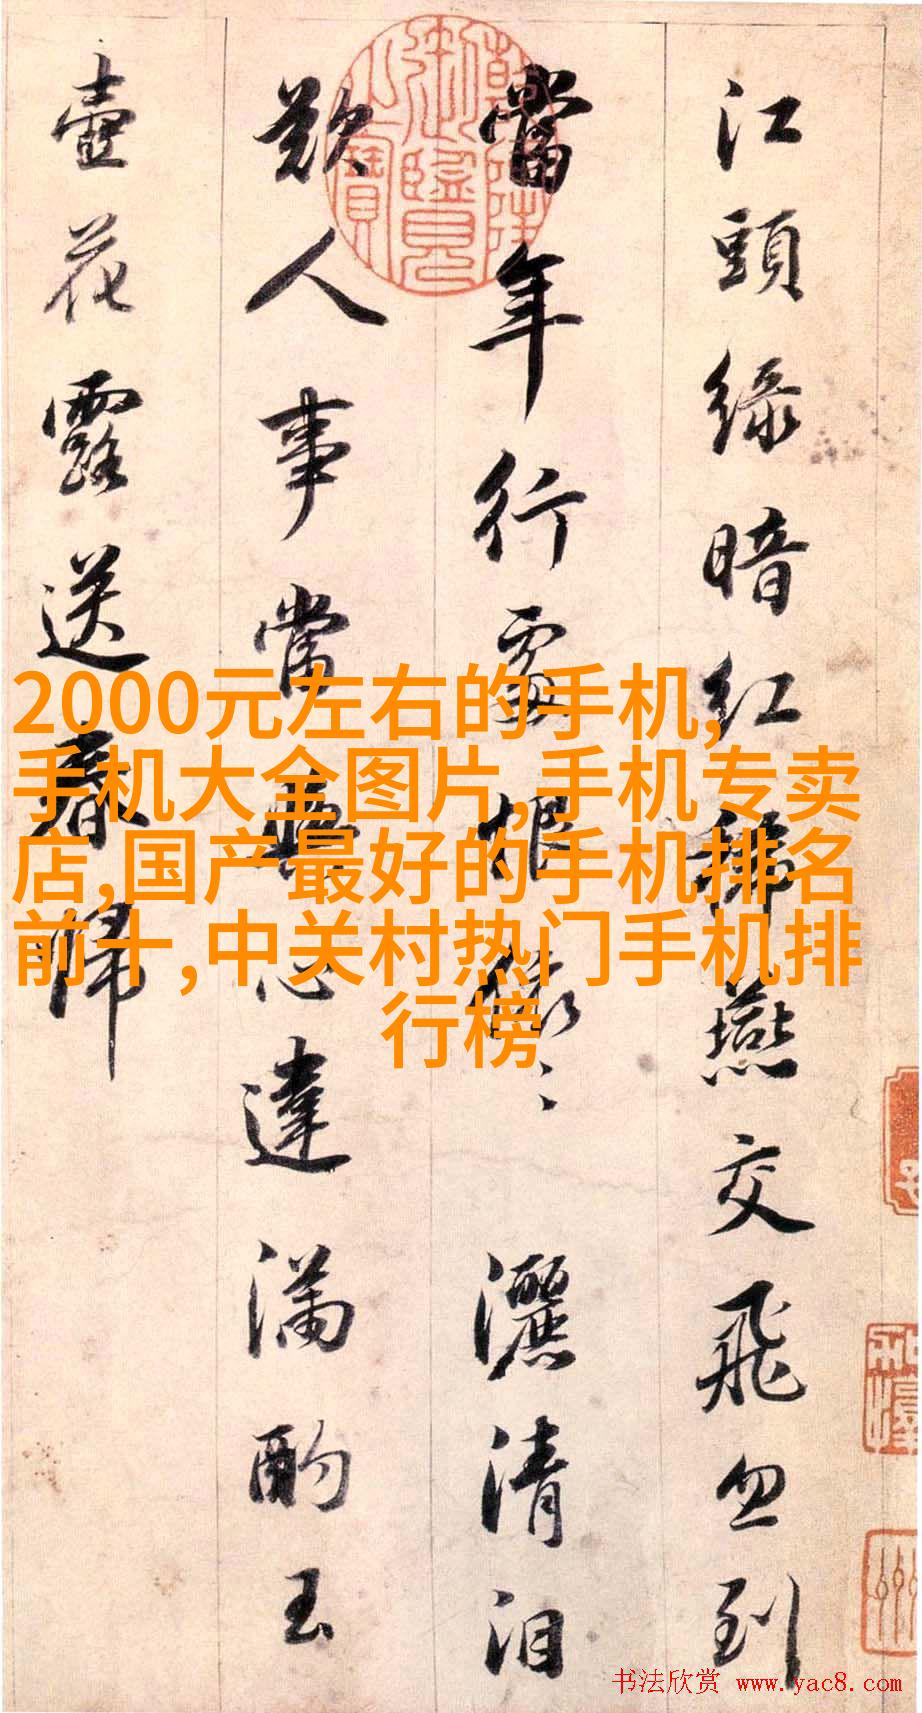 江頭綠暗紅稀燕交飛忽到
當年行處恨依〻灑清泪
歎人事當與心違滿酌玉
壺花露送春歸
乾隆御覽之寶
2000元左右的手机,
手机大全图片,手机专卖
店,国产最好的手机排名
前十,中关村热门手机排
行榜
书法欣赏 www.yac8.com